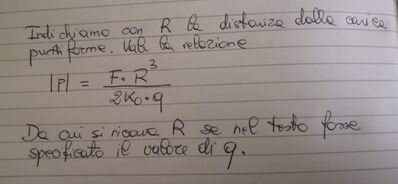 Indichiamo con R la distanza dalla carica
puntiforme. Vale la relazione
|p| = F·R³ / 2K₀·q
Da cui si ricava R se nel testo fosse
specificato il valore di q.